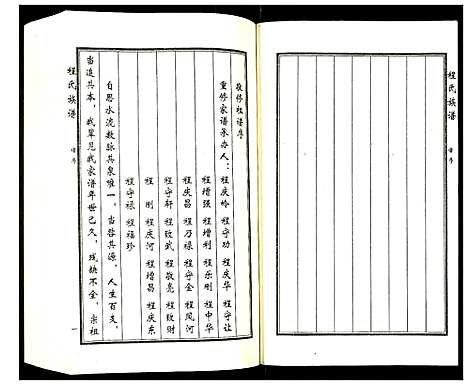 程氏族谱
谱序
敬修祖谱序
重修家谱承办人：
程庆岭 程守功 程庆华 程守让
程增强 程增利 程乐刚 程中华
程庆昌 程乃禄 程守金 程凤河
程守轩 程致武 程敬亮 程致财
程刚 程庆河 程增昌 程庆东
程守禄 程福珍
自思水流数脉其泉唯一，当啓其源，人生百支，
当追其本，我辈见我家谱年世已久，残缺不全，宗祖
程氏族谱
谱序
一